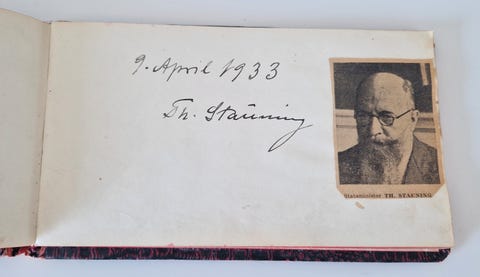 9. April 1933
Th. Stauning
Statsminister TH. STAUNING